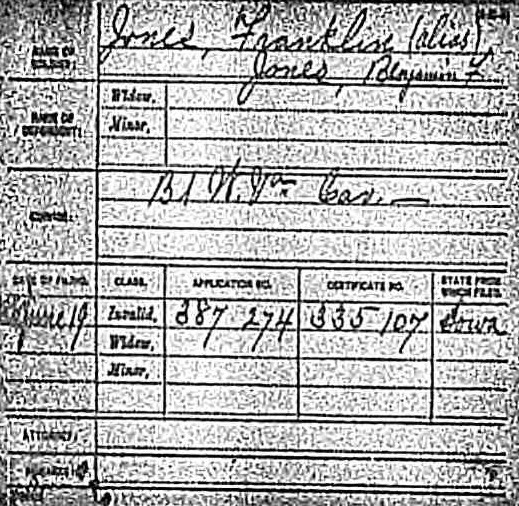 Jones, Franklin (alias)
NAME OF SOLDIER:
Jones, Benjamin F.
NAME OF DEPENDENT:
Widow,
Minor,
SERVICE:
B 1 W. Va Cav.
DATE OF FILING. CLASS. APPLICATION NO. CERTIFICATE NO. STATE FROM WHICH FILED.
June 19 Invalid, 387 274 335 107 Iowa
Widow,
Minor,
ATTORNEY:
REMARKS: